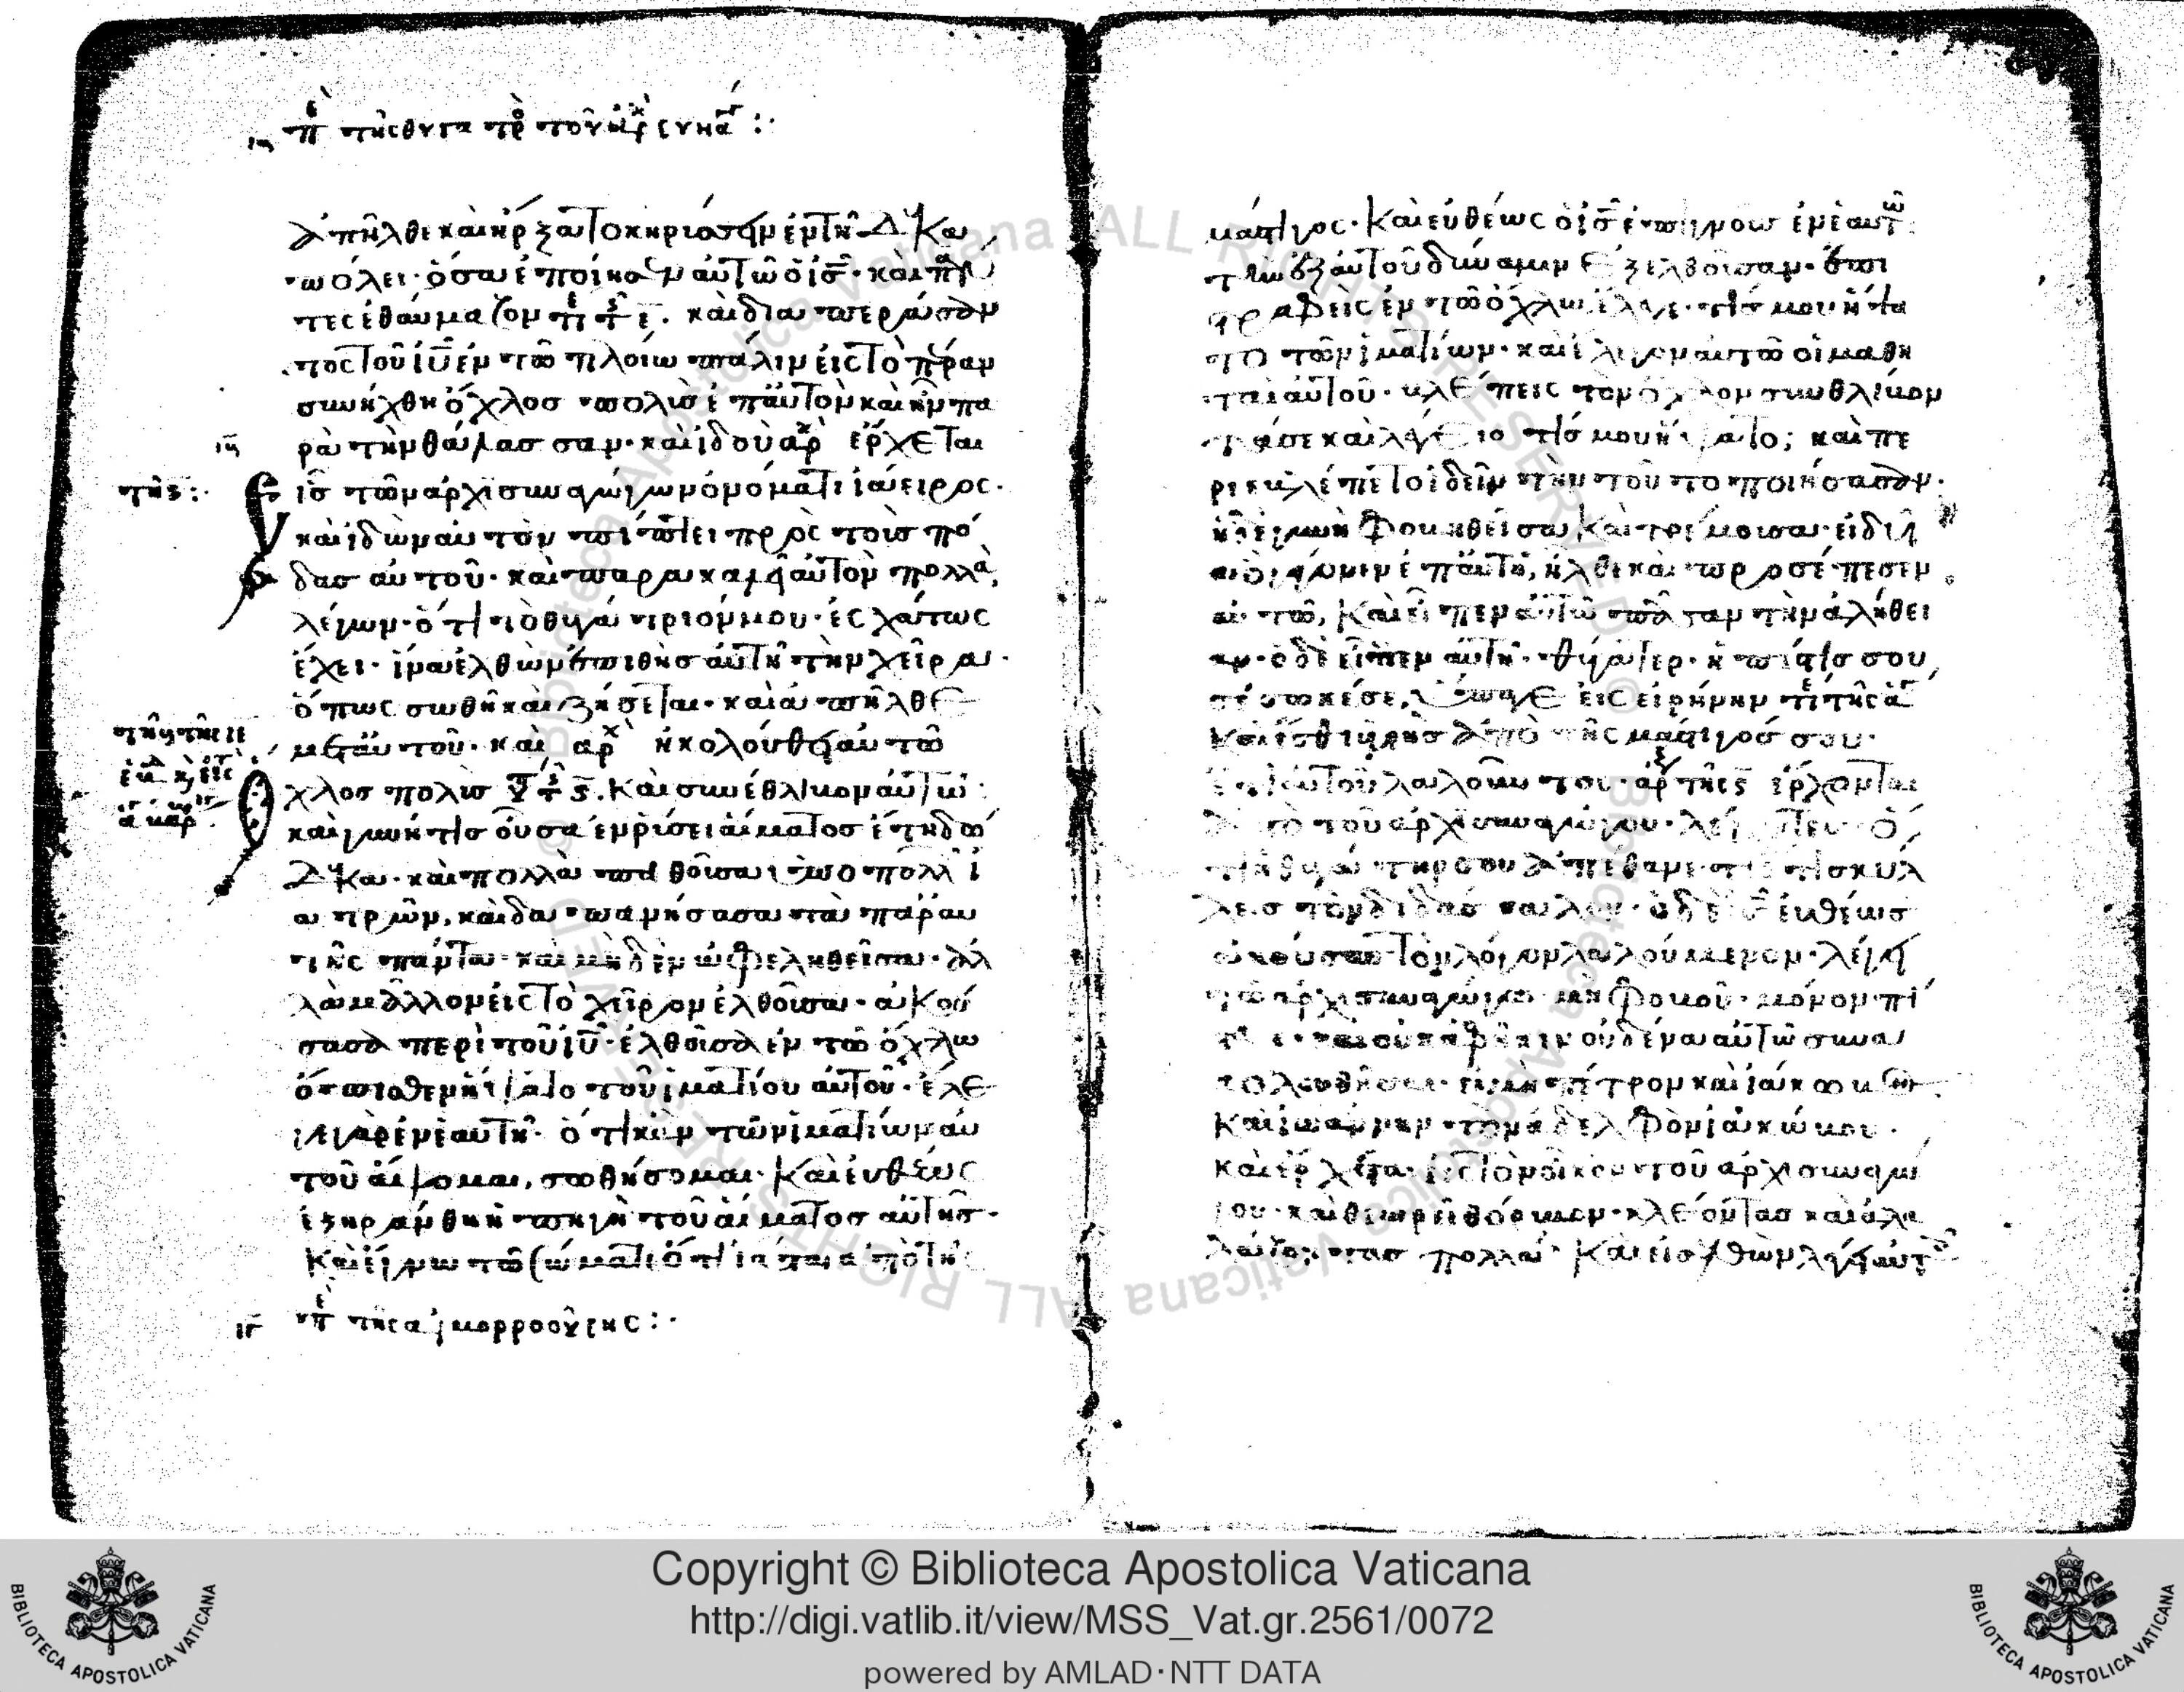 ιη πε της θυγατρο του αρχισυναγ :·
ἀπῆλθε καὶ ἤρξατο κηρύσσειν ἐν τῆ Δεκα
πόλει· ὅσα ἐποίησεν αὐτῶ ὁ ἰς· καὶ πάν
τες ἐθαύμαζον. καὶ διαπεράσαν
τος τοῦ ἰυ ἐν τῶ πλοίω πάλιν εἰς τὸ πέραν
συνήχθη ὄχλος πολὺς ἐπ αὐτὸν καὶ ἦν πα
ρὰ τὴν θάλασσαν· καὶ ἰδοὺ αρχ ἔρχεται
εἷς τῶν ἀρχισυναγώγων ὀνόματι ἰάειρος·
καὶ ἰδὼν αὐτὸν πίπτει πρὸς τοὺς πό
δας αὐτοῦ· καὶ παρακαλεῖ αὐτὸν πολλὰ,
λέγων· ὅτι τὸ θυγάτριόν μου· ἐσχάτως
ἔχει· ἵνα ἐλθὼν ἐπιθῆς αὐτῆ τὴν χεῖρα·
ὅπως σωθῆ καὶ ζήσεται· καὶ ἀπῆλθε
μετ αὐτοῦ· καὶ αρχ ἠκολούθει αὐτῶ
ὄχλος πολὺς. Καὶ συνέθλιβον αὐτόν·
καὶ γυνή τις οὖσα ἐν ρύσει αἵματος ἔτη δώ
δεκα· καὶ πολλὰ παθοῦσα ὑπὸ πολλῶν
ἰατρῶν, καὶ δαπανήσασα τὰ παρ αυ
τῆς πάντα· καὶ μηδὲν ὠφεληθεῖσα· ἀλ
λὰ μᾶλλον εἰς τὸ χεῖρον ἐλθοῦσα· ἀκού
σασα περὶ τοῦ ἰυ· ἐλθοῦσα ἐν τῶ ὄχλω
ὄπισθεν ἥψατο τοῦ ἱματίου αὐτοῦ· ἔλε
γε γὰρ ἐν ἑαυτῆ· ὅτι κἂν τῶν ἱματίων αὐ
τοῦ ἅψομαι, σωθήσομαι· Καὶ εὐθέως
ἐξηράνθη ἡ πηγὴ τοῦ αἵματος αὐτῆς·
Καὶ ἔγνω τῶ σώματι ὅτι ἴαται ἀπὸ τῆς
ιγ πε της αιμορροουσης :·
μάστιγος· Καὶ εὐθέως ὁ ἰς ἐπιγνοὺς ἐν ἑαυτῶ
τὴν ἐξ αὐτοῦ δύναμιν ἐξελθοῦσαν· ἐπι
στραφεὶς ἐν τῶ ὄχλω ἔλεγε· τίς μου ἥψα
το τῶν ἱματίων· καὶ ἔλεγον αὐτῶ οἱ μαθη
ταὶ αὐτοῦ· βλέπεις τὸν ὄχλον συνθλίβον
τά σε καὶ λέγεις τίς μου ἥψατο; καὶ πε
ριεβλέπετο ἰδεῖν τὴν τοῦτο ποιήσασαν·
ἡ δὲ γυνὴ φοβηθεῖσα Καὶ τρέμουσα· εἰδυῖα
ὃ γέγονεν ἐπ αὐτῆ, ἦλθε καὶ προσέπεσεν
αὐτῶ, Καὶ εἶπεν αὐτῶ πᾶσαν τὴν ἀλήθει
αν· ὁ δὲ εἶπεν αὐτῆ· θύγατερ· ἡ πίστις σου
σέσωκέ σε, ὕπαγε εἰς εἰρήνην
Καὶ ἴσθι ὑγιὴς ἀπὸ τῆς μάστιγός σου·
Ἔτι αὐτοῦ λαλοῦντος· ἔρχονται
ἀπὸ τοῦ ἀρχισυναγώγου· λέγοντες· ὅ
τι ἡ θυγάτηρ σου ἀπέθανε· τί ἔτι σκύλ
λεις τὸν διδάσκαλον· ὁ δὲ ἰς εὐθέως
ἀκούσας τὸν λόγον λαλούμενον· λέγει
τῶ ἀρχισυναγώγω· μὴ φοβοῦ· μόνον πί
στευε· καὶ οὐκ ἀφῆκεν οὐδένα αὐτῶ συνα
κολουθῆσαι· εἰ μὴ πέτρον καὶ ἰάκωβον
Καὶ ἰωάννην τὸν ἀδελφὸν ἰακώβου·
Καὶ ἔρχεται εἰς τὸν οἶκον τοῦ ἀρχισυναγώ
γου· καὶ θεωρεῖ θόρυβον· κλέοντας καὶ ἀλα
λάζοντας πολλά· Καὶ εἰσελθὼν λέγει αὐτοῖς
Copyright © Biblioteca Apostolica Vaticana
http://digi.vatlib.it/view/MSS_Vat.gr.2561/0072
powered by AMLAD·NTT DATA
BIBLIOTECA APOSTOLICA VATICANA
BIBLIOTECA APOSTOLICA VATICANA